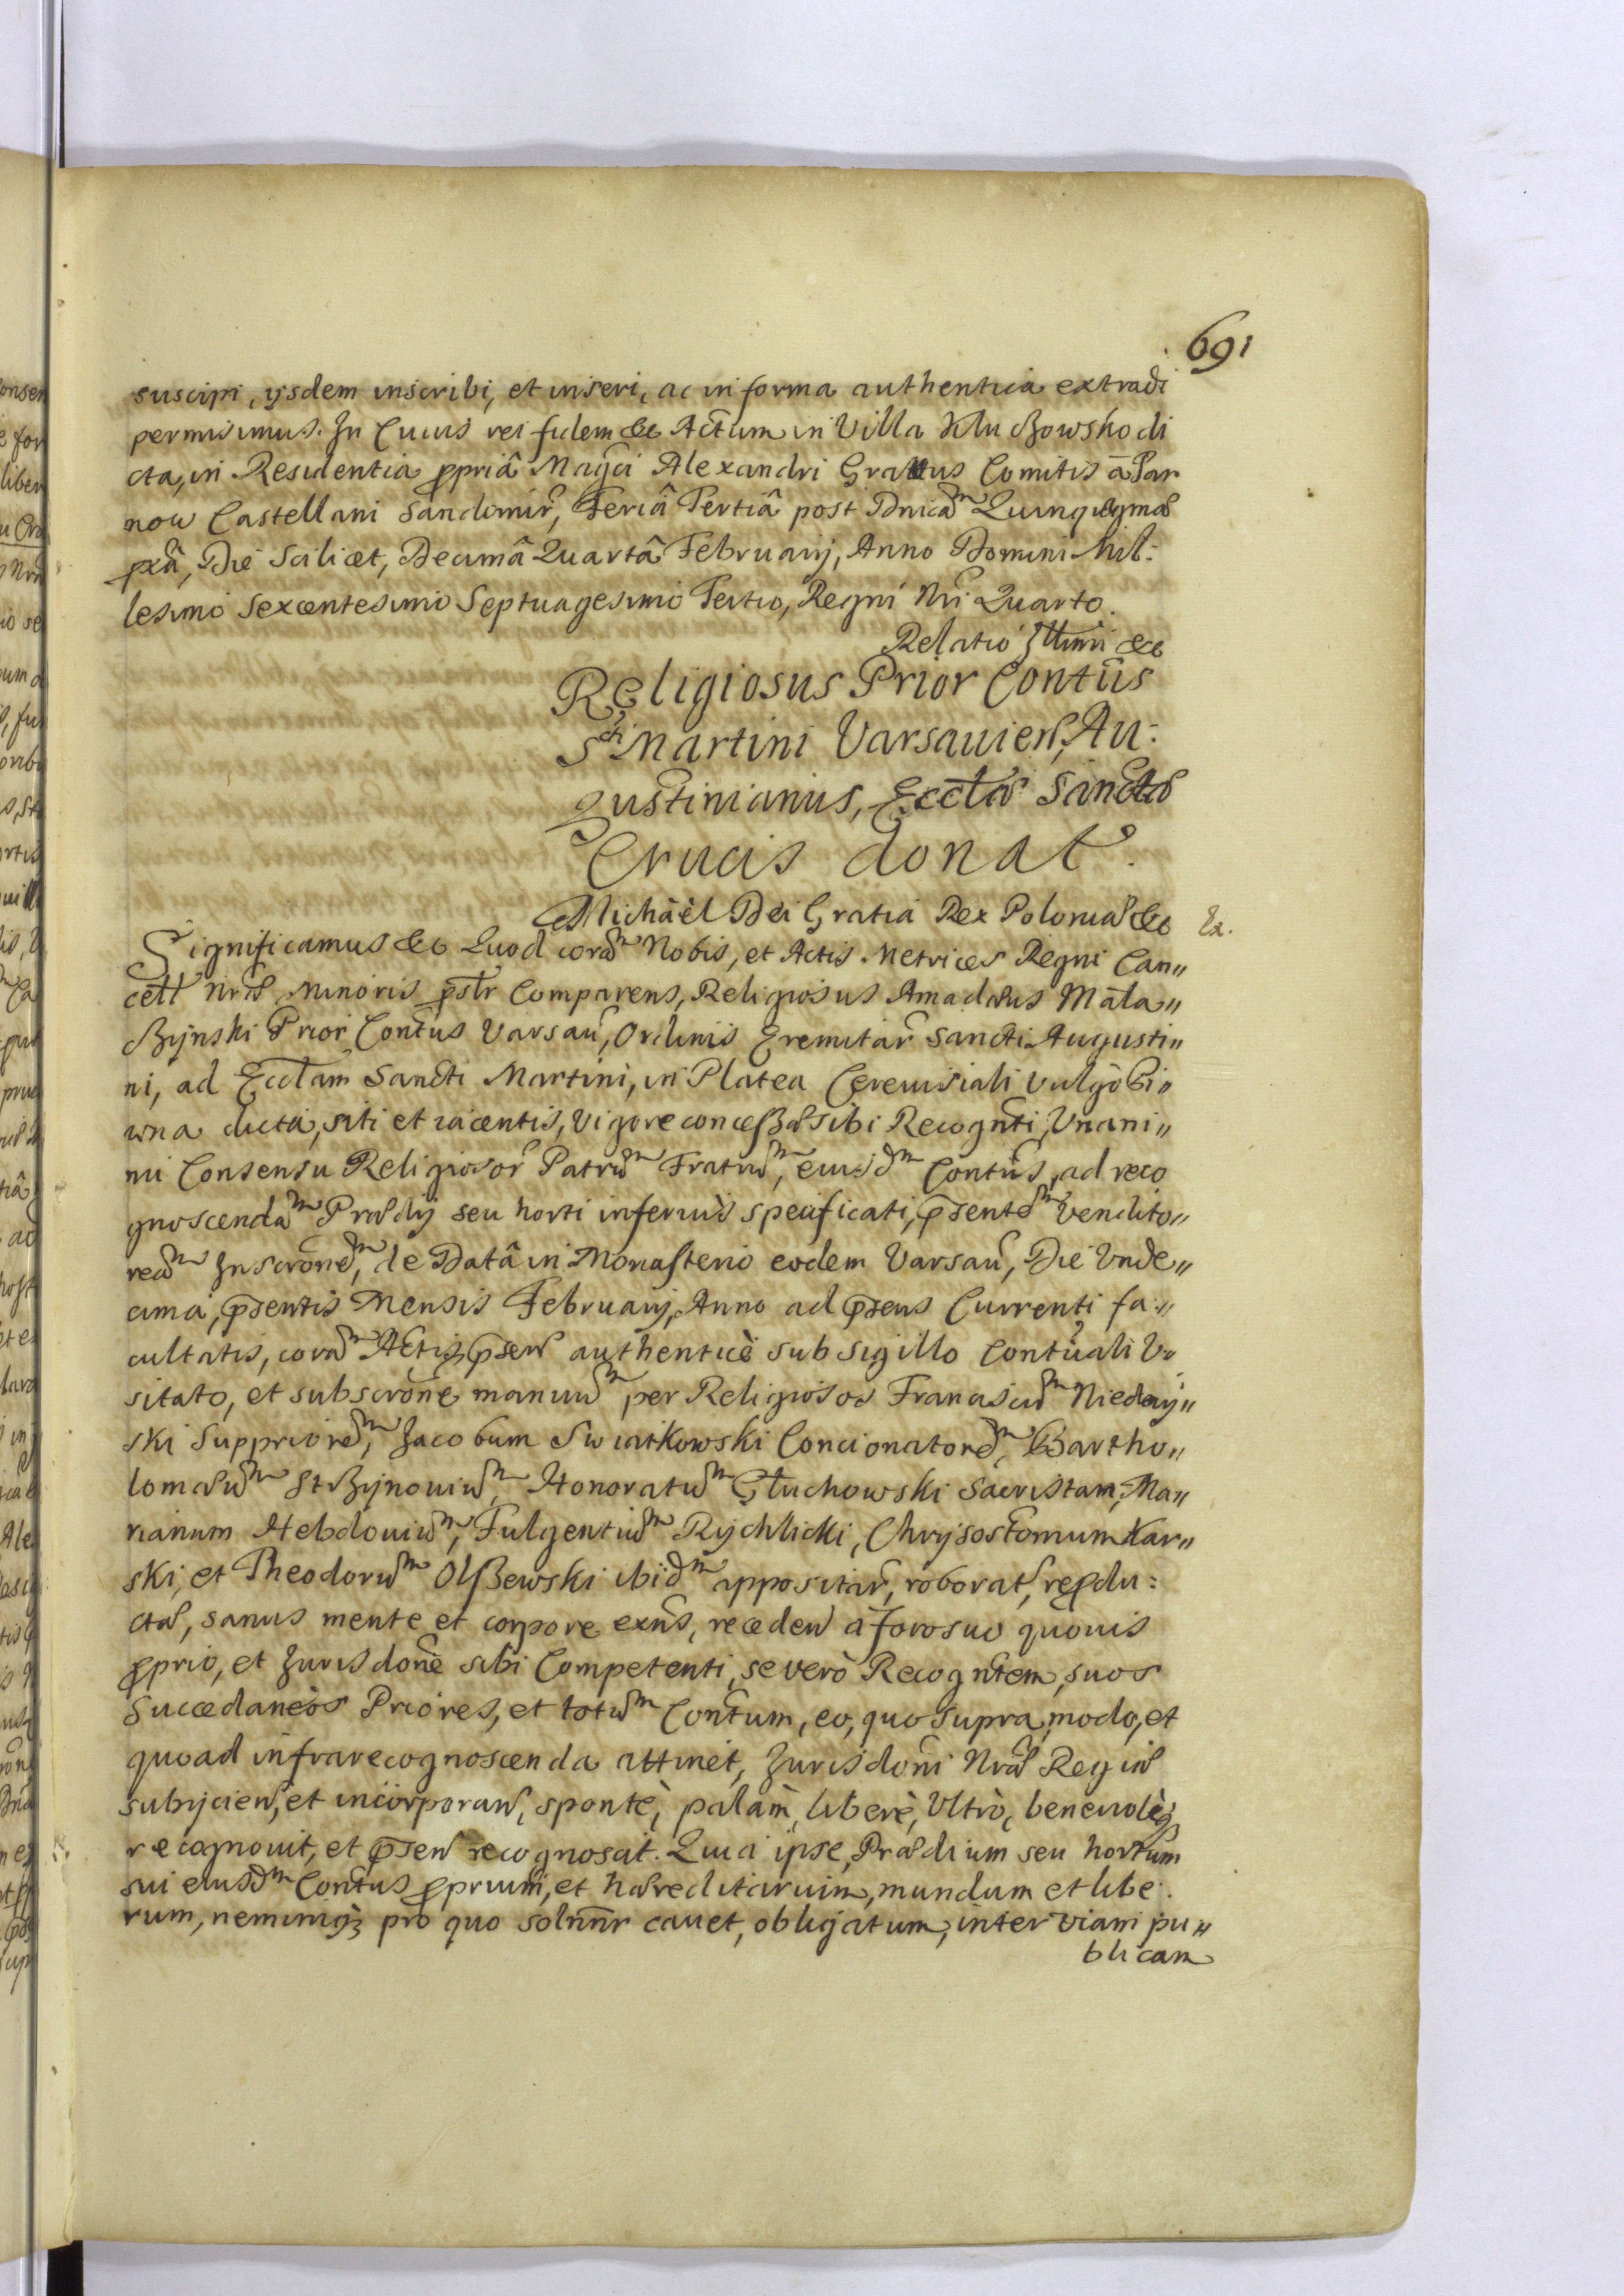 691
suscipi, ijsdem inscribi, et inseri, ac in forma authentica extradi
permisimus. In Cuius rei fidem &c Actum in Villa Kluczowsko di
cta, in Residentia ppriâ Magci Alexandri Grattus Comitis à Tar
now Castellani Sandomir, Feriâ Tertiâ post Dnicam Quinquagmæ
pxâ, Die Scilicet, Decimâ Quartâ Februarij, Anno Domini Mil:
lesimo Sexcentesimo Septuagesimo Tertio, Regni Nri Quarto.
Relatio Illmi &c
Religiosus Prior Contûs
Scti Martini Varsavien, Au:
gustinianus, Ecctæ Sanctæ
Crucis donat.
Michaèl Dei Gratia Rex Poloniæ &c Ex.
Significamus &c Quod coram Nobis, et Actis Metrices Regni Can„
cell Nræ Minoris pslr Comparens, Religiosus Amadæus Mala„
czynski Prior Contûs Varsau, Ordinis Eremitar Sancti Augusti„
ni, ad Ecclam Sancti Martini, in Platea Cerevisiali vulgò Pi„
wna dicta, siti et iacentis, vigore concessæ sibi Recognti, Unani„
mi Consensu Religiosor Patrum Fratrum, eiusdm Contûs, ad reco
gnoscendam Prædij seu horti inferiùs specificati, psentem Vendito„
ream Inscronem, de Datâ in Monasterio eodem Varsau, Die Vnde„
cima, psentis Mensis Februarij, Anno ad psens Currenti fa„
cultatis, coram Actis psen authenticè sub sigillo Contuali V„
sitato, et subscrone manuum per Religiosos Franciscum Niedzy„
ski Suppriorem, Jacobum Swiatkowski Concionatorem, Bartho„
lomæum Strzynovium, Honoratum Głuchowski Sacristam, Ma„
rianum Hebdovium, Fulgentium Rychlicki, Chrysostomum Kar„
ski, et Theodorum Olszewski ibidm appositar, roborat, repdu:
ctæ, sanus mente et corpore exns, receden à foro suo quovis
pprio, et Jurisdone sibi Competenti, se verò Recogntem, suos
Succedaneos Priores, et totum Contum, eo, quo supra, modo, et
quoad infra recognoscenda attinet, Jurisdoni Nræ Regiæ
subijcien, et incorporan, sponte, palàm, liberè, Vltrò, benevolèq;
recognovit, et psen recognoscit. Quia ipse, Prædium seu hortum
sui eiusdm Contûs pprium, et hæreditarium, mundum et libe:
rum, neminiq; pro quo solnnr cavet, obligatum, inter viam pu„
blicam